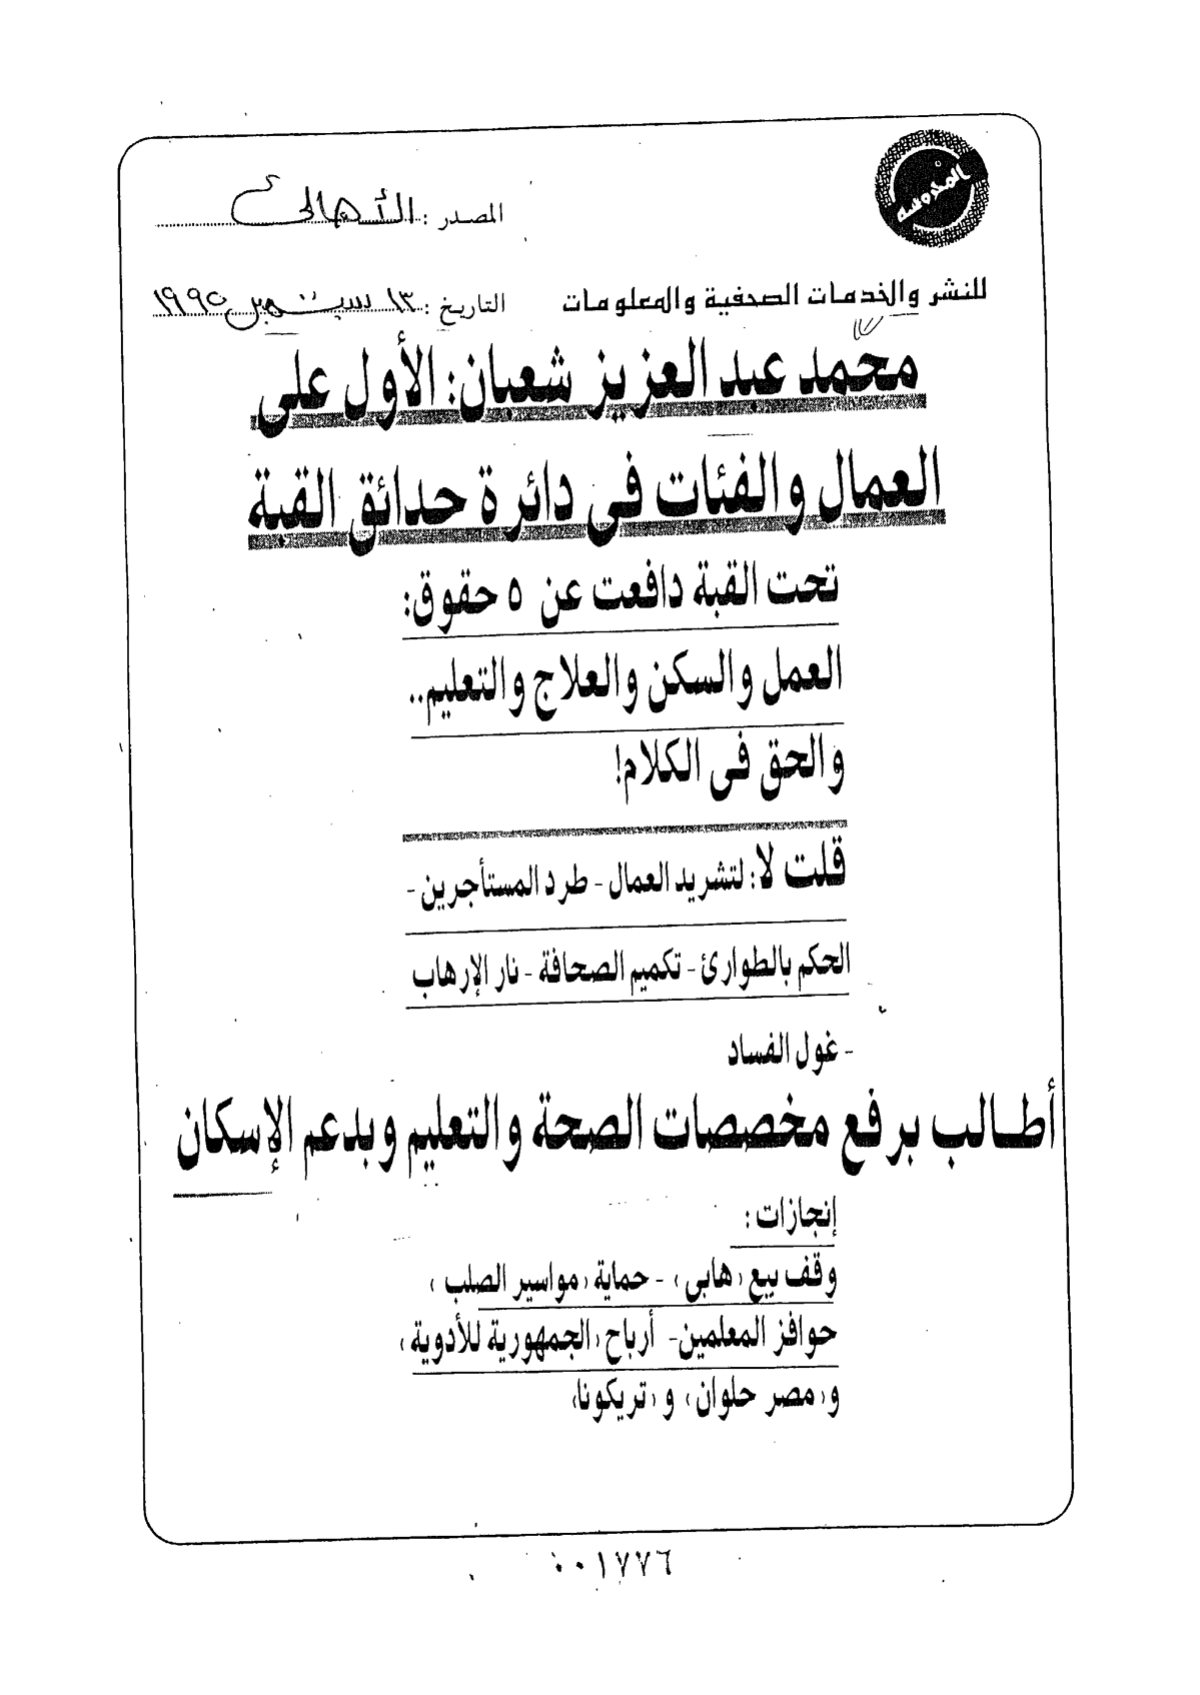 المحروسة
المصدر : الأهالى
للنشر والخدمات الصحفية والمعلومات
التاريخ : ١٣ سبتمبر ١٩٩٥
محمد عبد العزيز شعبان: الأول على
العمال والفئات فى دائرة حدائق القبة
تحت القبة دافعت عن ٥ حقوق:
العمل والسكن والعلاج والتعليم..
والحق فى الكلام!
قلت لا: لتشريد العمال - طرد المستأجرين -
الحكم بالطوارئ - تكميم الصحافة - نار الإرهاب
- غول الفساد
أطالب برفع مخصصات الصحة والتعليم وبدعم الإسكان
إنجازات :
وقف بيع «هابى» - حماية «مواسير الصلب»
حوافز المعلمين - أرباح «الجمهورية للأدوية»
و«مصر حلوان» و«تريكونا»
٠٠١٧٧٦